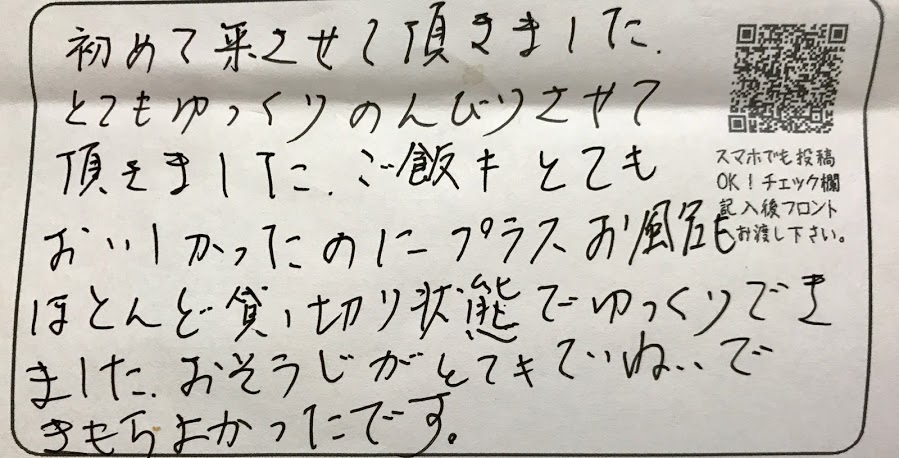 初めて来させて頂きました.
とてもゆっくりのんびりさせて
頂きました.ご飯もとても
おいしかったのにプラスお風呂も
ほとんど貸し切り状態でゆっくりでき
ました.おそうじがとてもていねいで
きもちよかったです。
スマホでも投稿
OK!チェック欄
記入後フロント
お渡し下さい。